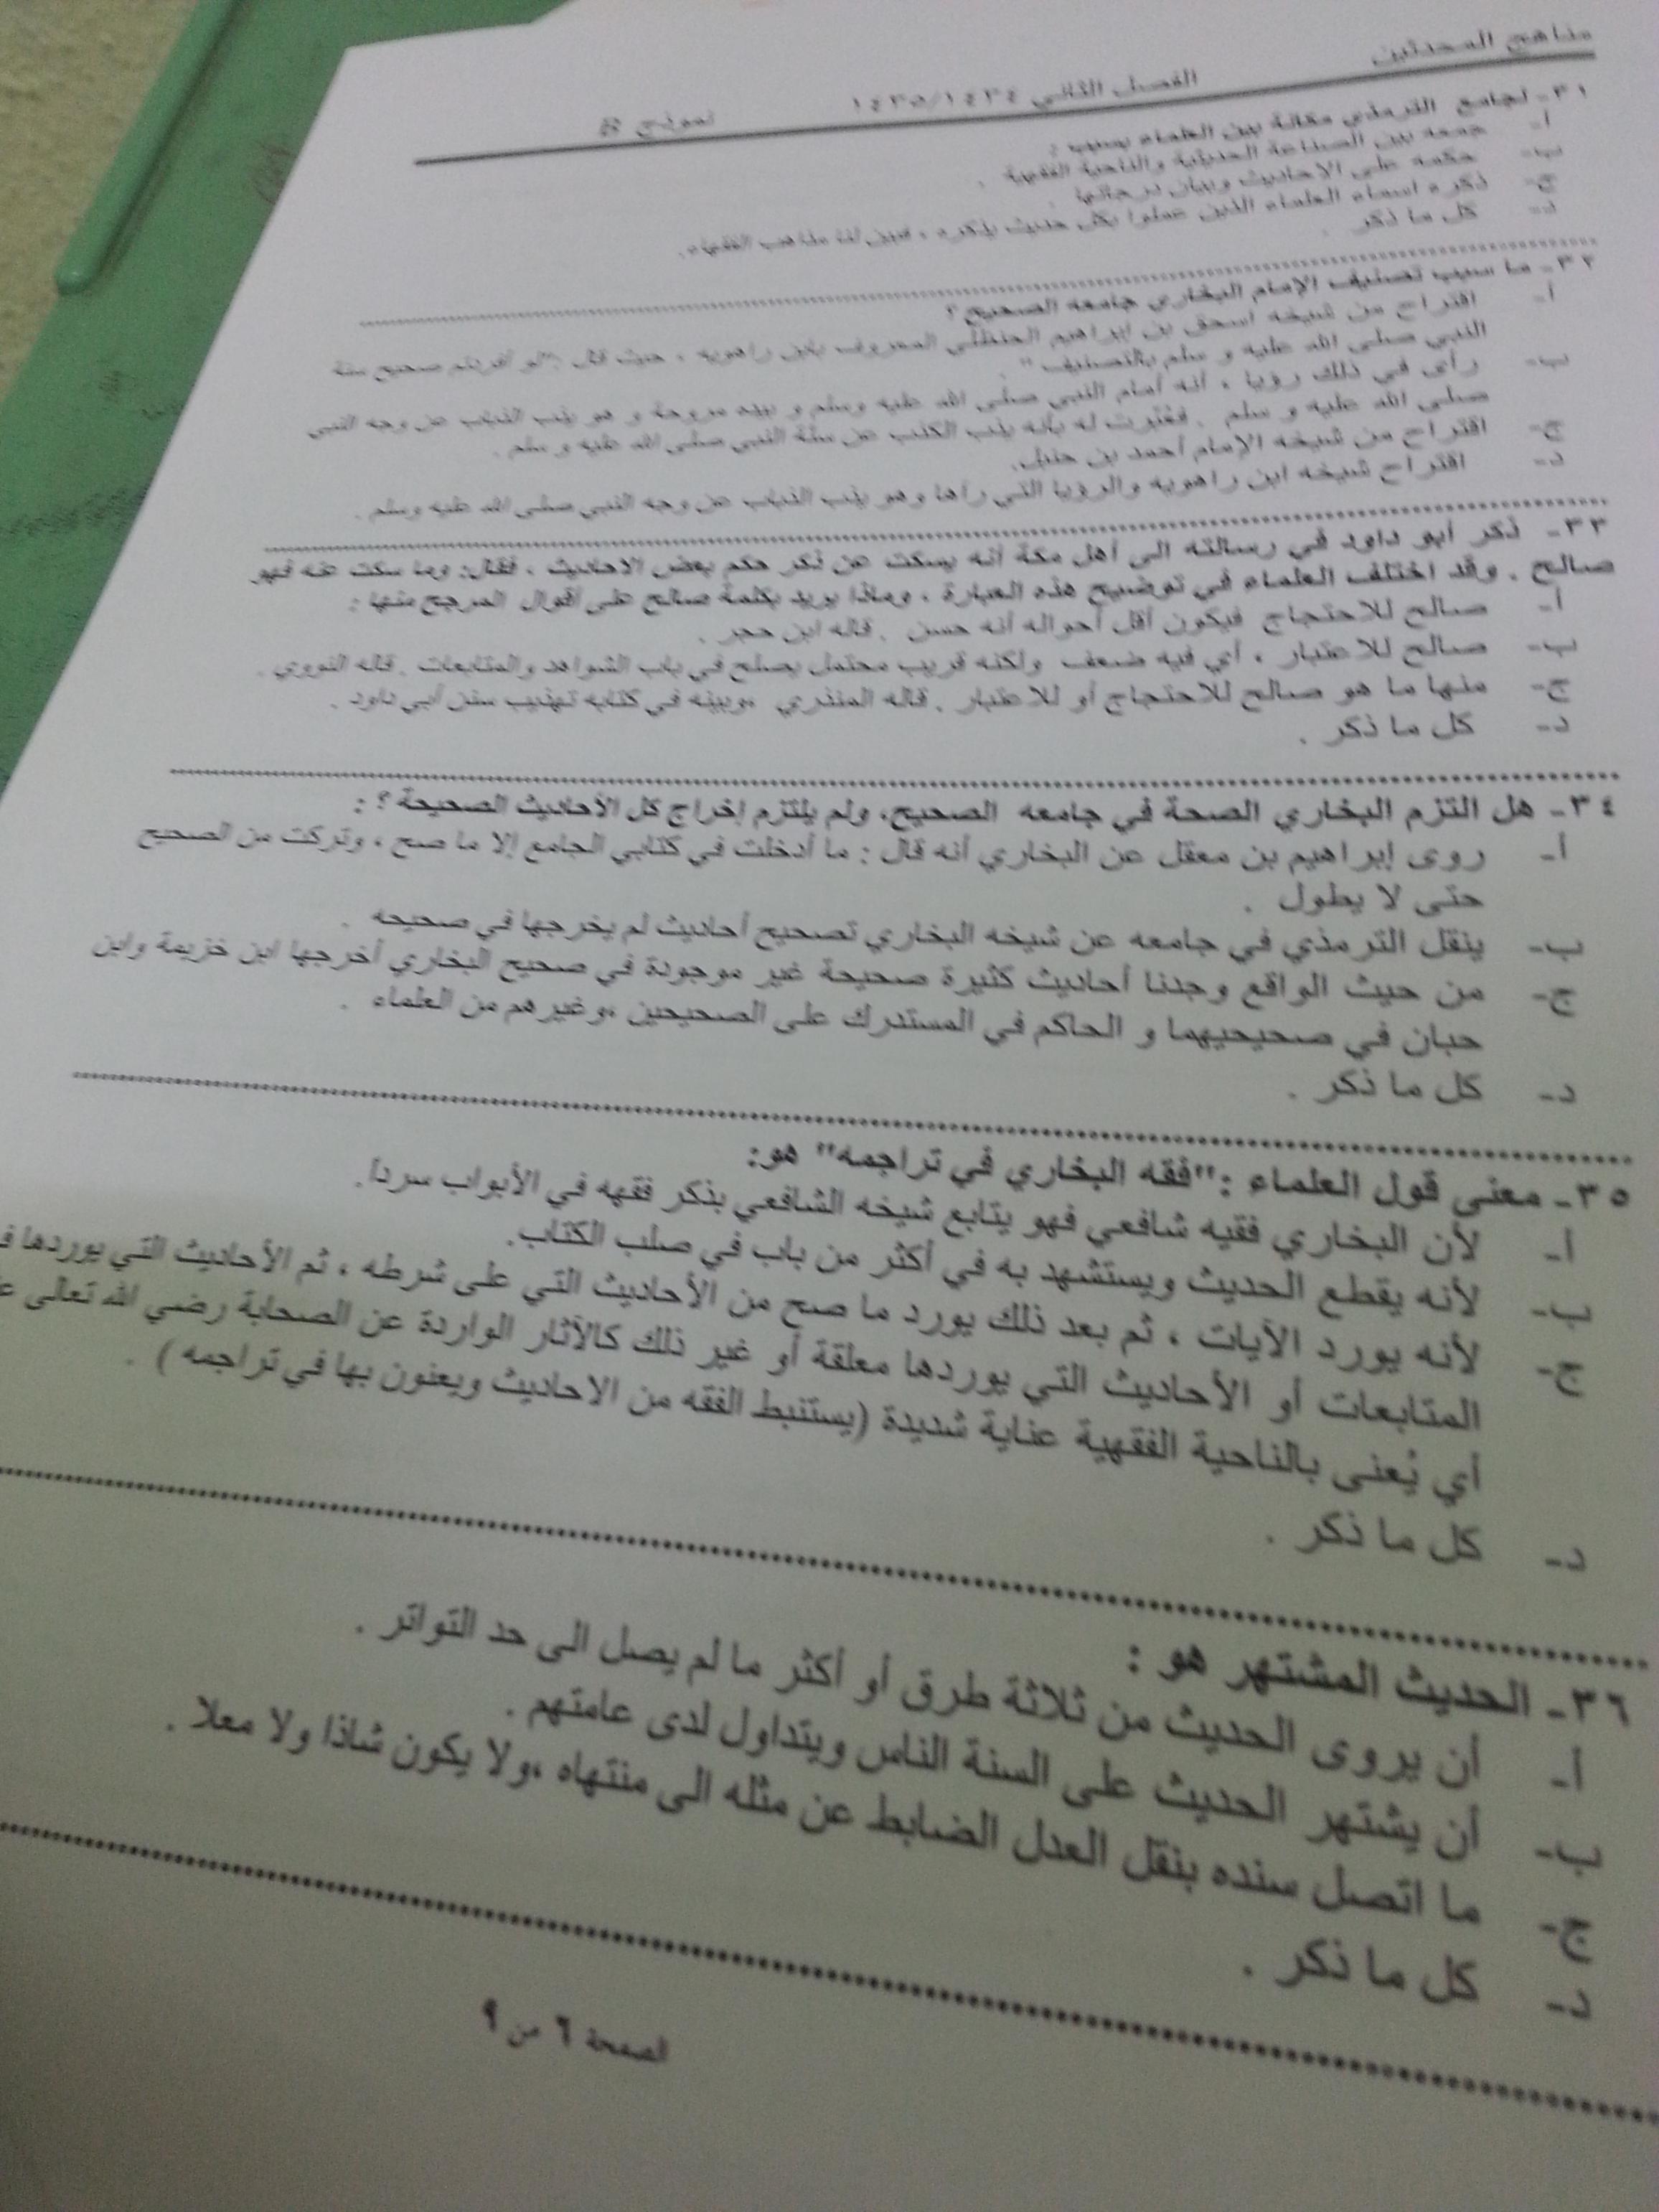 مناهج المحدثين
الفصل الثاني ١٤٣٤/١٤٣٥
نموذج B
٣١- لجامع الترمذي مكانة بين العلماء بسبب :
أ- جمعه بين الصناعة الحديثية والناحية الفقهية .
ب- حكمه على الاحاديث وبيان درجاتها .
ج- ذكره اسماء العلماء الذين عملوا بكل حديث يذكره ، فبين لنا مذاهب الفقهاء.
د- كل ما ذكر .
٣٢- ما سبب تصنيف الإمام البخاري جامعه الصحيح ؟
أ- اقتراح من شيخه اسحق بن إبراهيم الحنظلي المعروف بابن راهويه ، حيث قال :"لو أفردتم صحيح سنة
النبي صلى الله عليه و سلم بالتصنيف " .
ب- رأى في ذلك رؤيا ، أنه أمام النبي صلى الله عليه وسلم و بيده مروحة و هو يذب الذباب عن وجه النبي
صلى الله عليه و سلم . فعُبّرت له بأنه يذب الكذب عن سنة النبي صلى الله عليه و سلم .
ج- اقتراح من شيخه الإمام أحمد بن حنبل.
د- اقتراح شيخه ابن راهويه والرؤيا التي رآها وهو يذب الذباب عن وجه النبي صلى الله عليه وسلم .
٣٣- ذكر أبو داود في رسالته الى أهل مكة أنه يسكت عن ذكر حكم بعض الاحاديث ، فقال: وما سكت عنه فهو
صالح . وقد اختلف العلماء في توضيح هذه العبارة ، وماذا يريد بكلمة صالح على أقوال المرجح منها :
أ- صالح للاحتجاج فيكون أقل أحواله أنه حسن . قاله ابن حجر .
ب- صالح للاعتبار ، أي فيه ضعف ولكنه قريب محتمل يصلح في باب الشواهد والمتابعات . قاله النووي .
ج- منها ما هو صالح للاحتجاج أو للاعتبار . قاله المنذري ،وبينه في كتابه تهذيب سنن أبي داود .
د- كل ما ذكر .
٣٤- هل التزم البخاري الصحة في جامعه الصحيح، ولم يلتزم إخراج كل الأحاديث الصحيحة ؟ :
أ- روى إبراهيم بن معقل عن البخاري أنه قال : ما أدخلت في كتابي الجامع إلا ما صح ، وتركت من الصحيح
حتى لا يطول .
ب- ينقل الترمذي في جامعه عن شيخه البخاري تصحيح أحاديث لم يخرجها في صحيحه .
ج- من حيث الواقع وجدنا أحاديث كثيرة صحيحة غير موجودة في صحيح البخاري أخرجها ابن خزيمة وابن
حبان في صحيحيهما و الحاكم في المستدرك على الصحيحين ،وغيرهم من العلماء .
د- كل ما ذكر .
٣٥- معنى قول العلماء :"فقه البخاري في تراجمه" هو:
أ- لأن البخاري فقيه شافعي فهو يتابع شيخه الشافعي بذكر فقهه في الأبواب سرداً.
ب- لأنه يقطع الحديث ويستشهد به في أكثر من باب في صلب الكتاب.
ج- لأنه يورد الآيات ، ثم بعد ذلك يورد ما صح من الأحاديث التي على شرطه ، ثم الأحاديث التي يوردها
المتابعات أو الأحاديث التي يوردها معلقة أو غير ذلك كالآثار الواردة عن الصحابة رضي الله تعالى
أي يُعنى بالناحية الفقهية عناية شديدة (يستنبط الفقه من الاحاديث ويعنون بها في تراجمه ) .
د- كل ما ذكر .
٣٦- الحديث المشتهر هو :
أ- أن يروى الحديث من ثلاثة طرق أو أكثر ما لم يصل الى حد التواتر .
ب- أن يشتهر الحديث على السنة الناس ويتداول لدى عامتهم .
ج- ما اتصل سنده بنقل العدل الضابط عن مثله الى منتهاه ،ولا يكون شاذا ولا معلا .
د- كل ما ذكر .
الصفحة ٦ من ٩